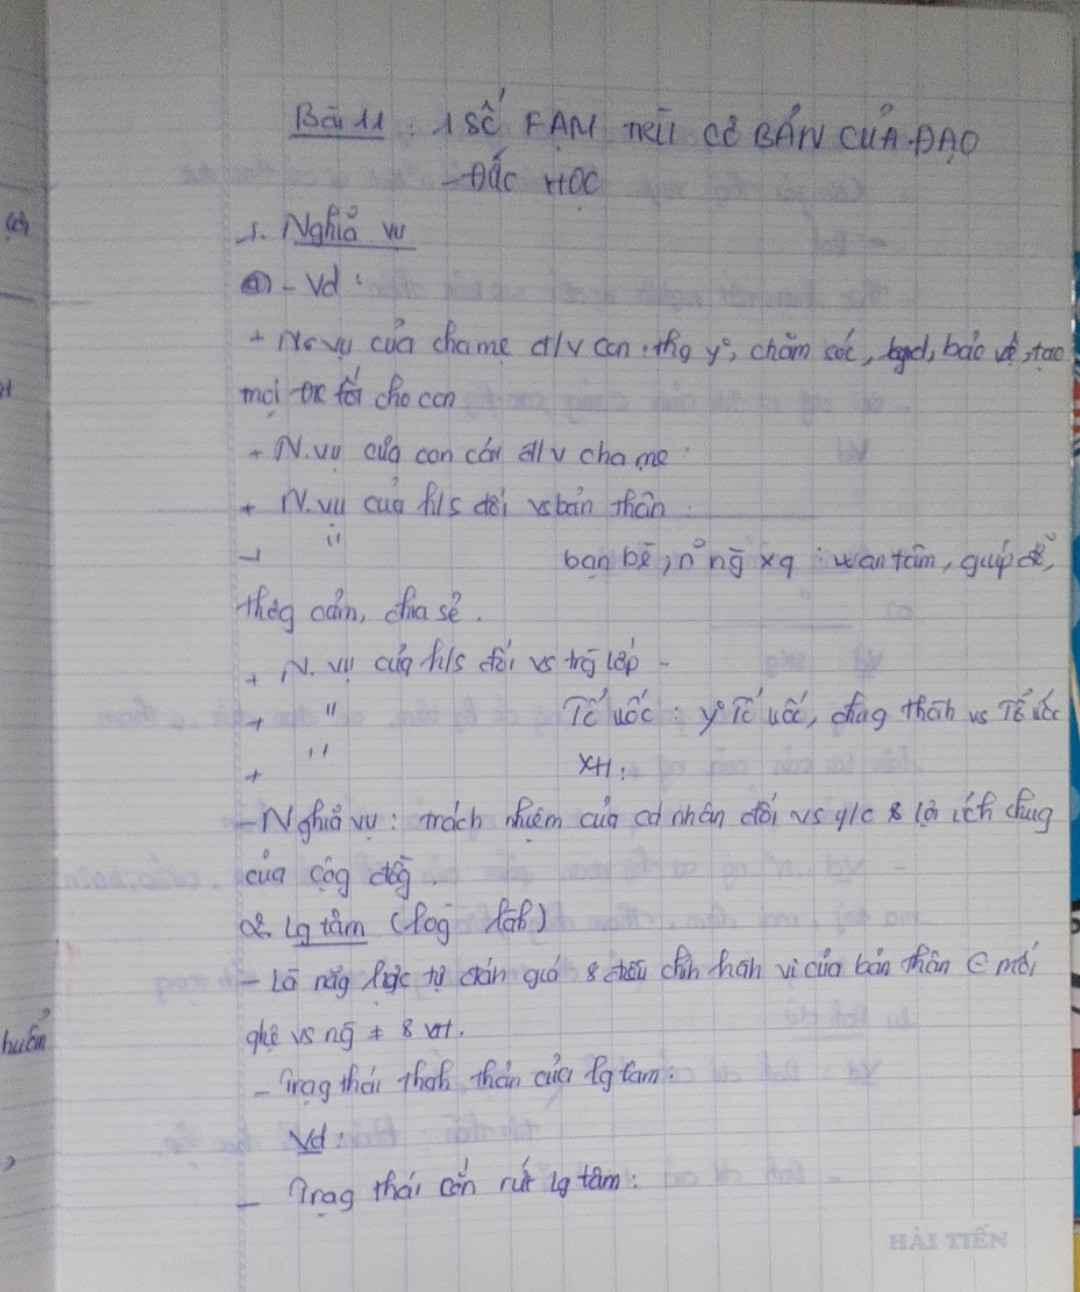 Bài 11 : 1 SỐ FẠM TRÙ CƠ BẢN CỦA ĐẠO
ĐỨC HỌC
1. Nghĩa vụ
a) - Vd :
+ N.vụ của cha mẹ đ/v con : thg y°, chăm sóc, bảo vệ, tạo
mọi ĐK tốt cho con
+ N.vụ của con cái đ/v cha mẹ :
+ N.vụ của h/s đối vs bản thân :
+ " bạn bè, n° ng̃ xq : wan tâm, giúp đỡ,
thôg cảm, chia sẻ.
+ N.vụ của h/s đối vs trg̃ lớp -
+ " Tổ uốc : y° Tổ uốc, trug thàh vs Tổ uốc
+ " XH :
- Nghĩa vụ : trách nhiệm của cá nhân đối vs y/c & lợi ích chug
của cộg đồg.
2. Lg tâm (lòg làh)
- Là năg lực tự đáh giá & điều chỉh hàh vi của bản thân mối
qhệ vs ng̃ ≠ & XH.
- Trạg thái thah thản của lg tâm :
Vd :
- Trạg thái cắn rứt lg tâm :
huấn
HẢI TIẾN